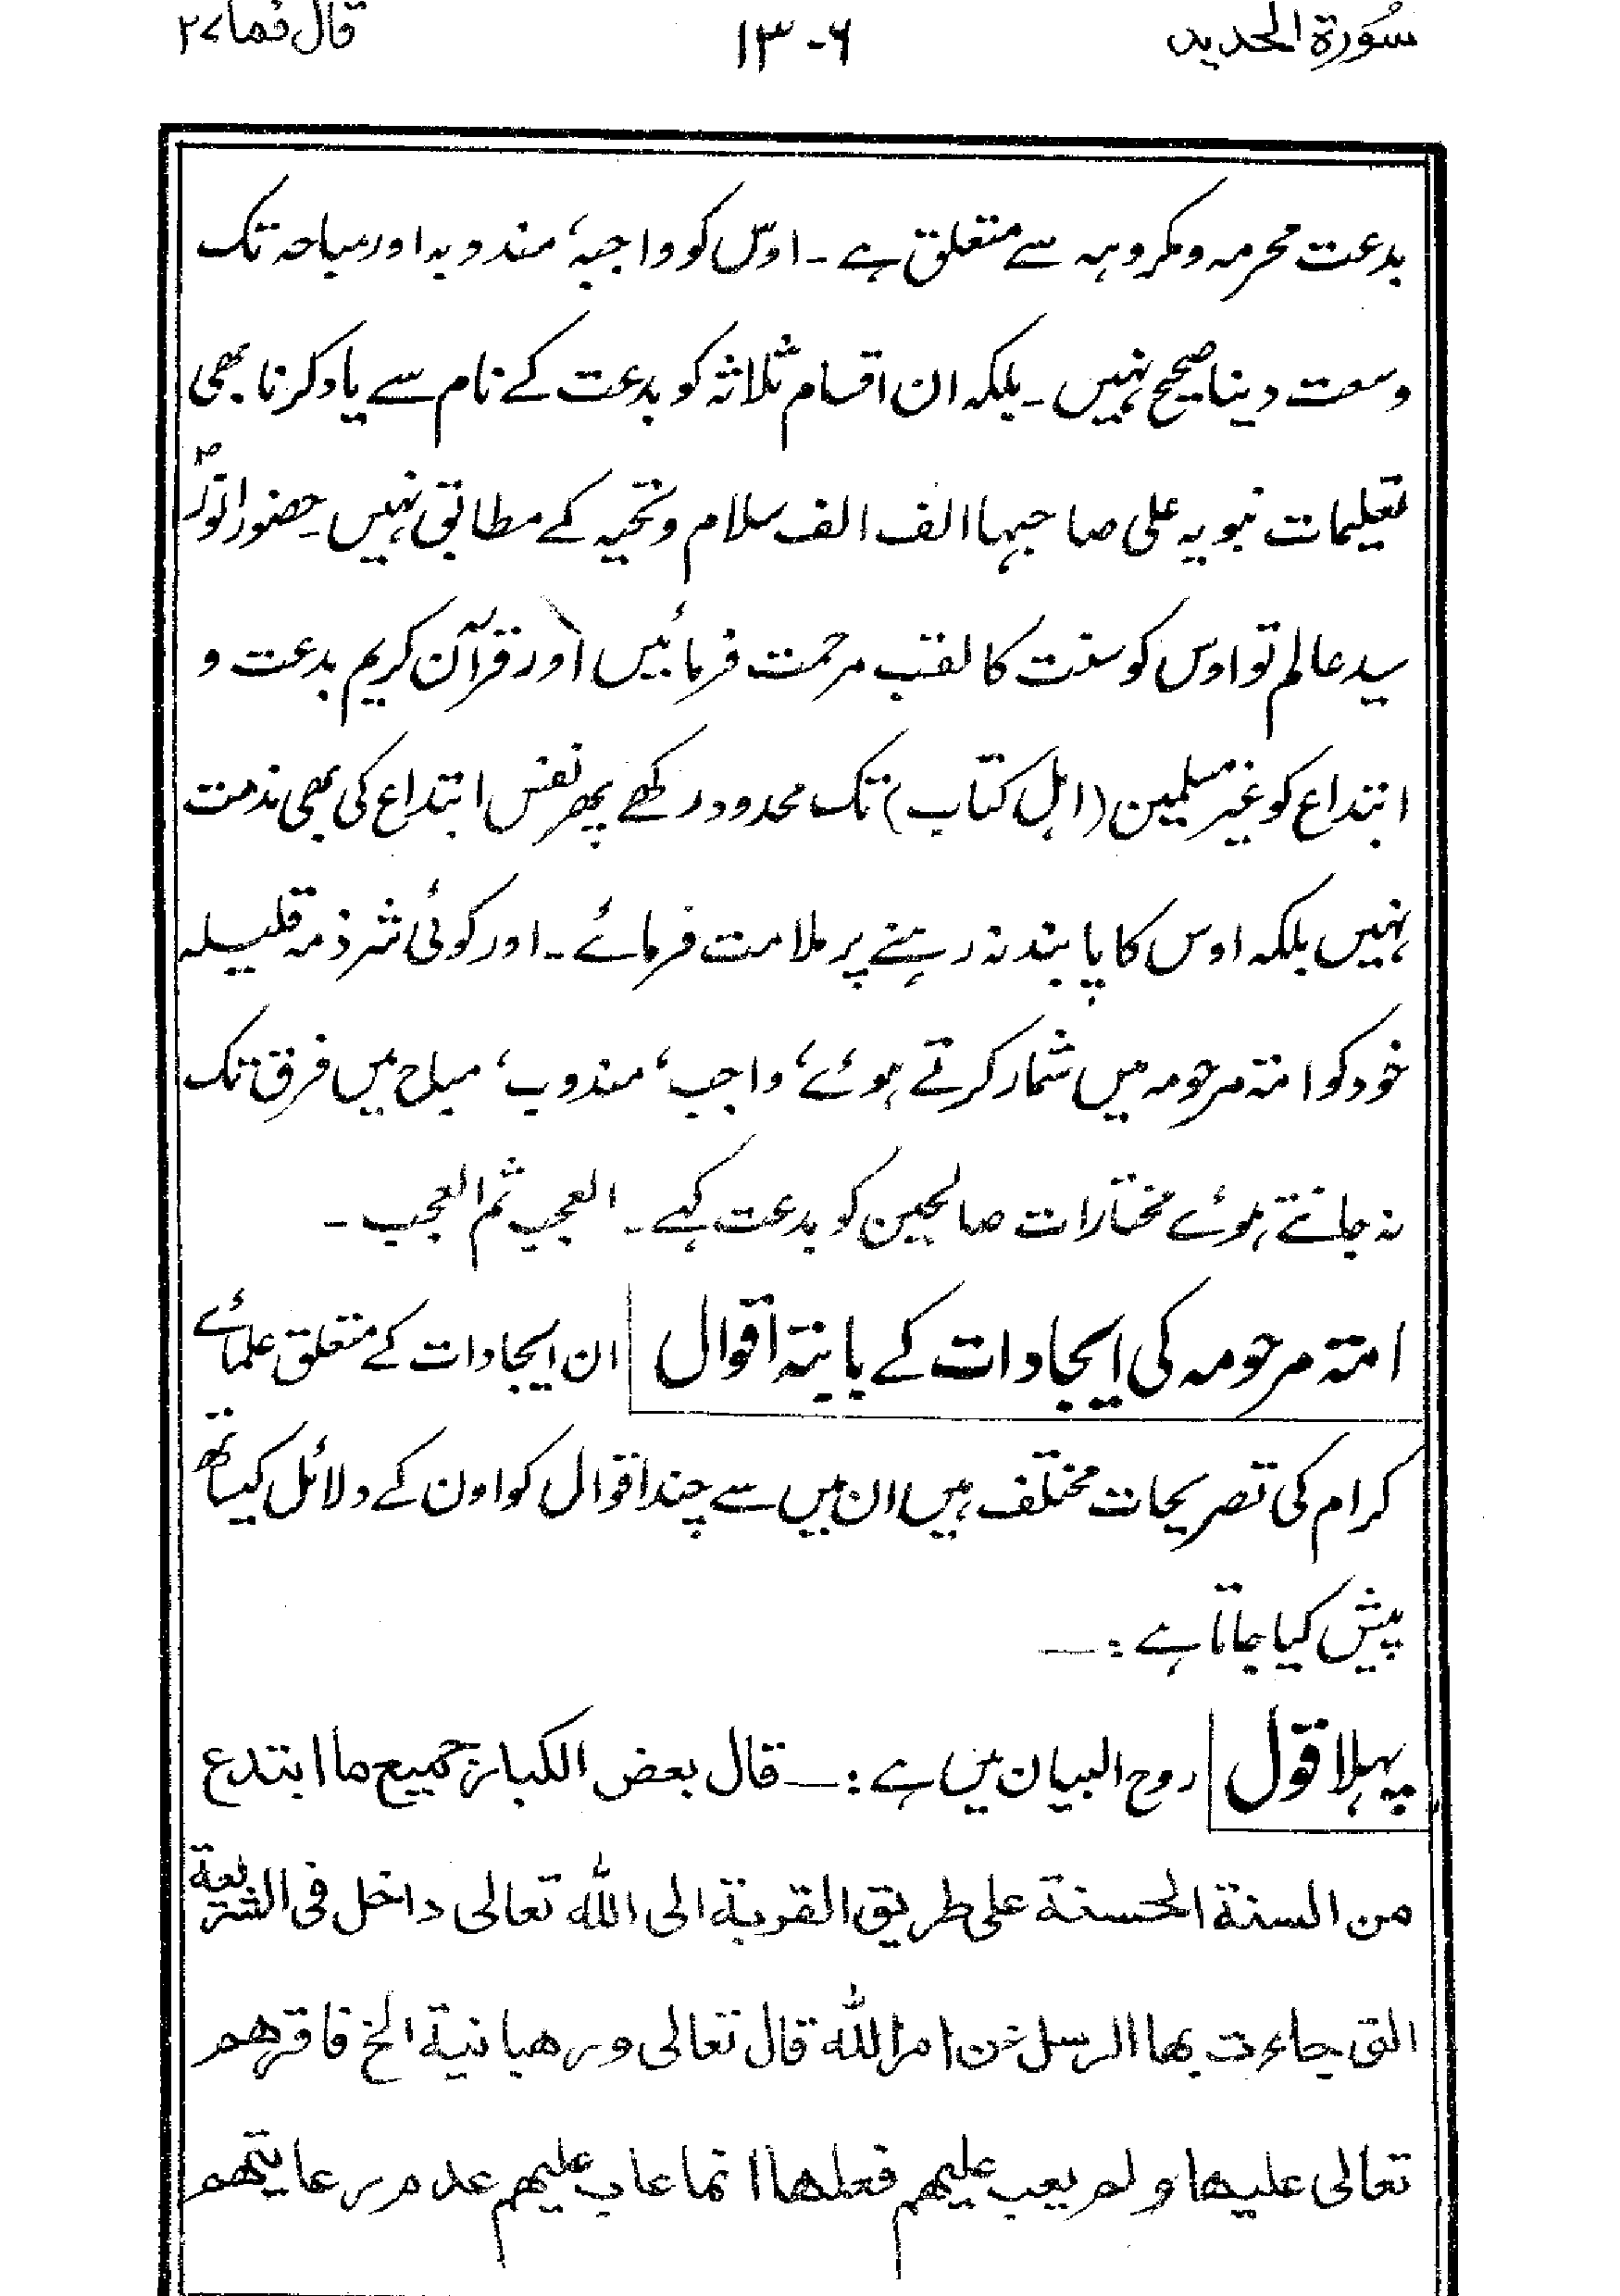 سُورۃ الحدید
۱۳-۶
قال فما ۲۷
بدعت محرمہ و مکروہہ سے متعلق ہے ۔ اوس کو واجبہ، مندوبہ اور مباحہ تک
وسعت دینا صحیح نہیں ۔ بلکہ ان اقسام ثلاثہ کو بدعت کے نام سے یاد کرنا بھی
تعلیمات نبویہ علی صاحبہا الف الف سلام وتحیہ کے مطابق نہیں ۔ حضور انورؐ
سید عالم تو اوس کو سنت کا لقب مرحمت فرمائیں اور قرآن کریم بدعت و
ابتداع کو غیر مسلمین (اہل کتاب) تک محدود رکھے پھر نفس ابتداع کی بھی مذمت
نہیں بلکہ اوس کا پابند نہ رہنے پر ملامت فرمائے ۔ اور کوئی شرذمہ قلیلہ
خود کو امتہ مرحومہ میں شمار کرتے ہوئے، واجب، مندوب، مباح میں فرق تک
نہ جانتے ہوئے مختارات صالحین کو بدعت کہے ۔ العجب ثم العجب ۔
امتہ مرحومہ کی ایجادات کے بابتہ اقوال ان ایجادات کے متعلق علمائے
کرام کی تصریحات مختلف ہیں ان میں سے چند اقوال کو اون کے دلائل کیساتھ
پیش کیا جاتا ہے :—
پہلا قول روح البیان میں ہے :— قال بعض الکبار جمیع ما ابتدع
من السنة الحسنة علی طریق القربة الی الله تعالی داخل فی الشریعة
التی جاءت بها الرسل عن امر الله قال تعالی ورهبانیة الخ فاقرهم
تعالی علیها ولم یعب علیهم فعلها انما عاب علیهم عدم رعایتهم